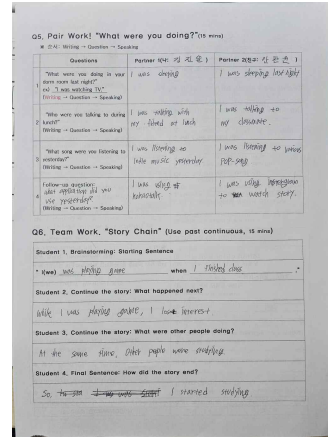 Q5. Pair Work! "What were you doing?"(15 mins)
※ 순서: Writing → Question → Speaking
Questions
Partner 1(
Partner 2(
1
"What were you doing in your dorm room last night?"
ex) "I was watching TV."
(Writing → Question → Speaking)
I was
I was sleeping last night
2
"Who were you talking to during lunch?"
(Writing → Question → Speaking)
I was talking with
my friend at lunch
I was talking to
my
3
"What song were you listening to yesterday?"
(Writing → Question → Speaking)
I was listening to
Indie music yesterday.
I was listening to various
POP-song
4
Follow-up question:
what application did you
use yesterday?
(Writing → Question → Speaking)
I was using
I was using instagram
to watch story.
Q6. Team Work. "Story Chain" (Use past continuous, 15 mins)
Student 1, Brainstorming: Starting Sentence
" I(we) was playing game when I finished class ."
Student 2, Continue the story: What happened next?
While I was playing game, I lost interest
Student 3, Continue the story: What were other people doing?
At the same time, Other people were studying.
Student 4, Final Sentence: How did the story end?
So, I started studying